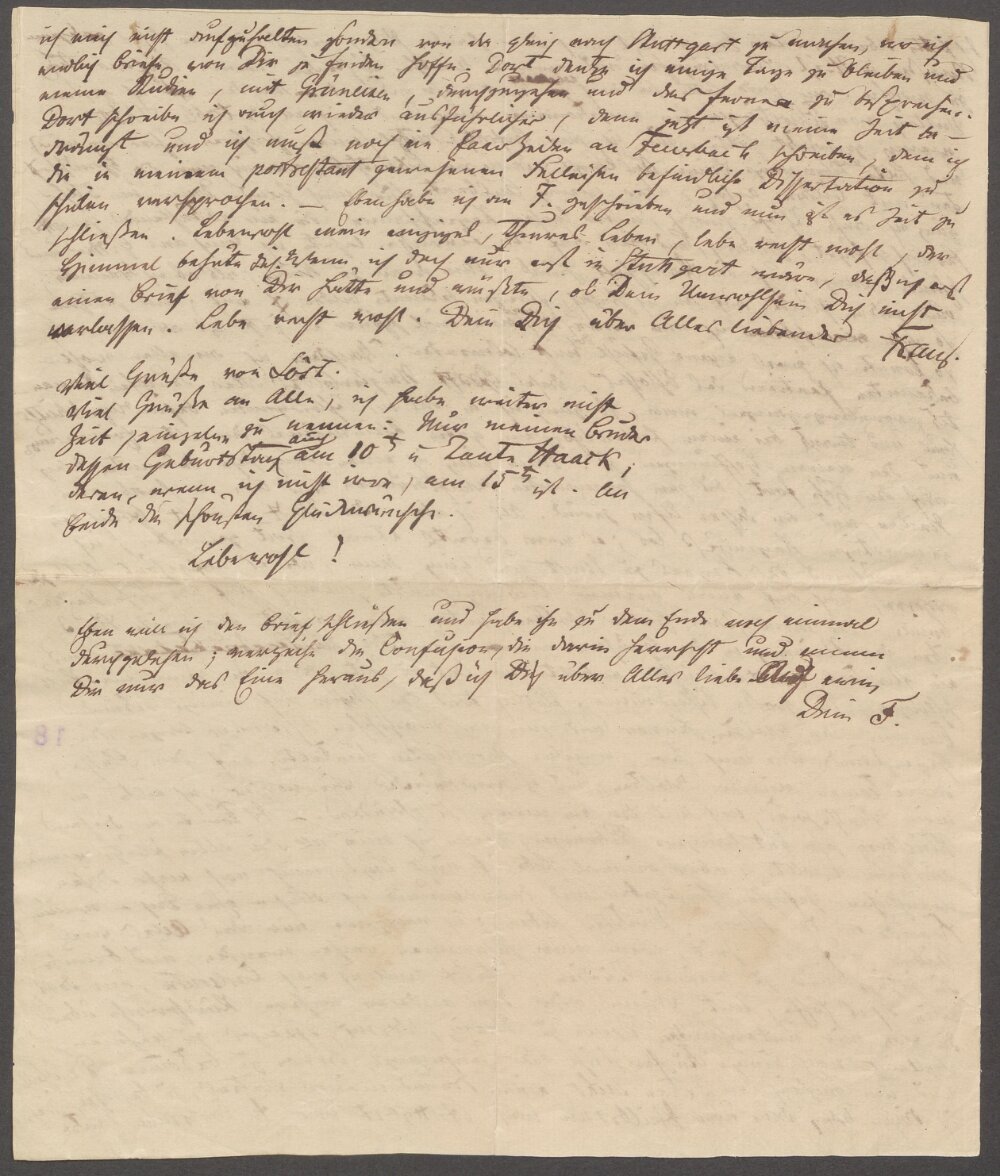 ich mich nicht aufzuhalten sondern von da gleich nach Stuttgart zu machen, wo ich
endlich Briefe von Dir zu finden hoffe. Dort denke ich einige Tage zu bleiben und
meine Studien, mit Grüneisen, durchzugehen und das fernere zu besprechen.
Dort schreibe ich auch wieder ausführlicher, denn jetzt ist meine Zeit be-
schränkt und ich muß noch ein Paar Zeilen an Feuerbach schreiben, dem ich
die in meinem gewesenen Felleisen befindliche Dissertation zu
schicken versprochen. — Eben habe ich an F. geschrieben und nun ist es Zeit zu
schließen. Lebewohl mein einziges, theures Leben, lebe recht wohl, der
Himmel behüte Dich. Wenn ich doch nur erst in Stuttgart wäre, daß ich erst
einen Brief von Dir hätte und wüßte, ob Dein Unwohlsein Dich nicht
verlassen. Lebe recht wohl. Dein Dich über Alles liebender Franz.
Viel Grüße von Löst.
Viel Grüße an Alle, ich habe weiter nicht
Zeit sie einzeln zu nennen: Nur meinen Bruder
dessen Geburtstag am 10t u Tante Haack,
deren, wenn ich nicht irre, am 15t ist. An
beide die schönsten Glückwünsche.
Lebewohl!
Eben will ich den Brief schließen und habe ihn zu dem Ende noch einmal
durchgelesen; verzeihe die Confusion, die darin herrscht und nimm
Dir nur das Eine heraus, daß ich Dich über Alles liebe ewig
Dein F.
18